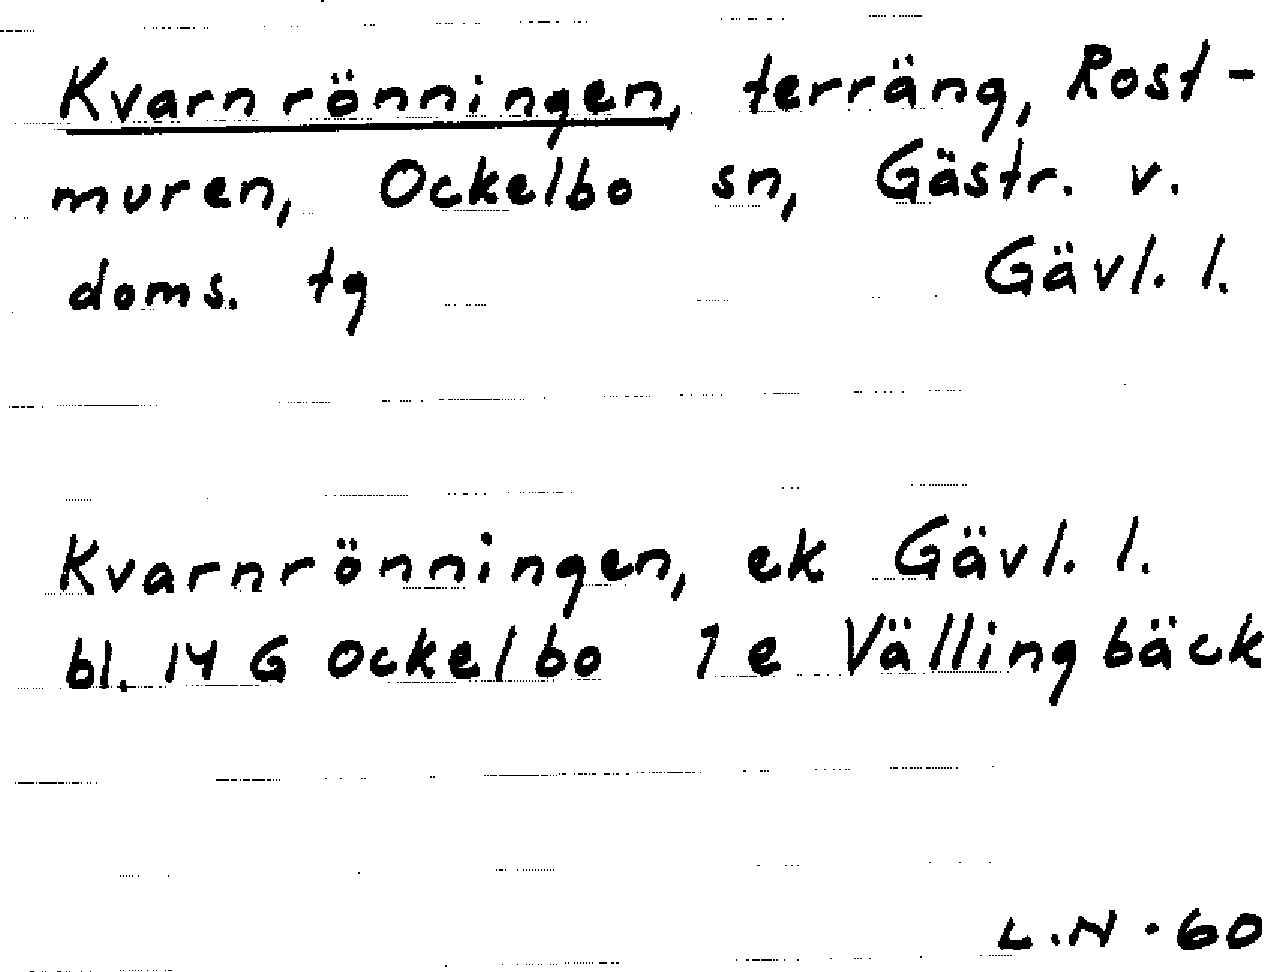 Kvarnrönningen, terräng, Rost-
muren, Ockelbo sn, Gästr. v.
doms. tg Gävl. l.
Kvarnrönningen, ek Gävl. l.
bl. 14 G Ockelbo 1 e Vällingbäck
L.N. 60